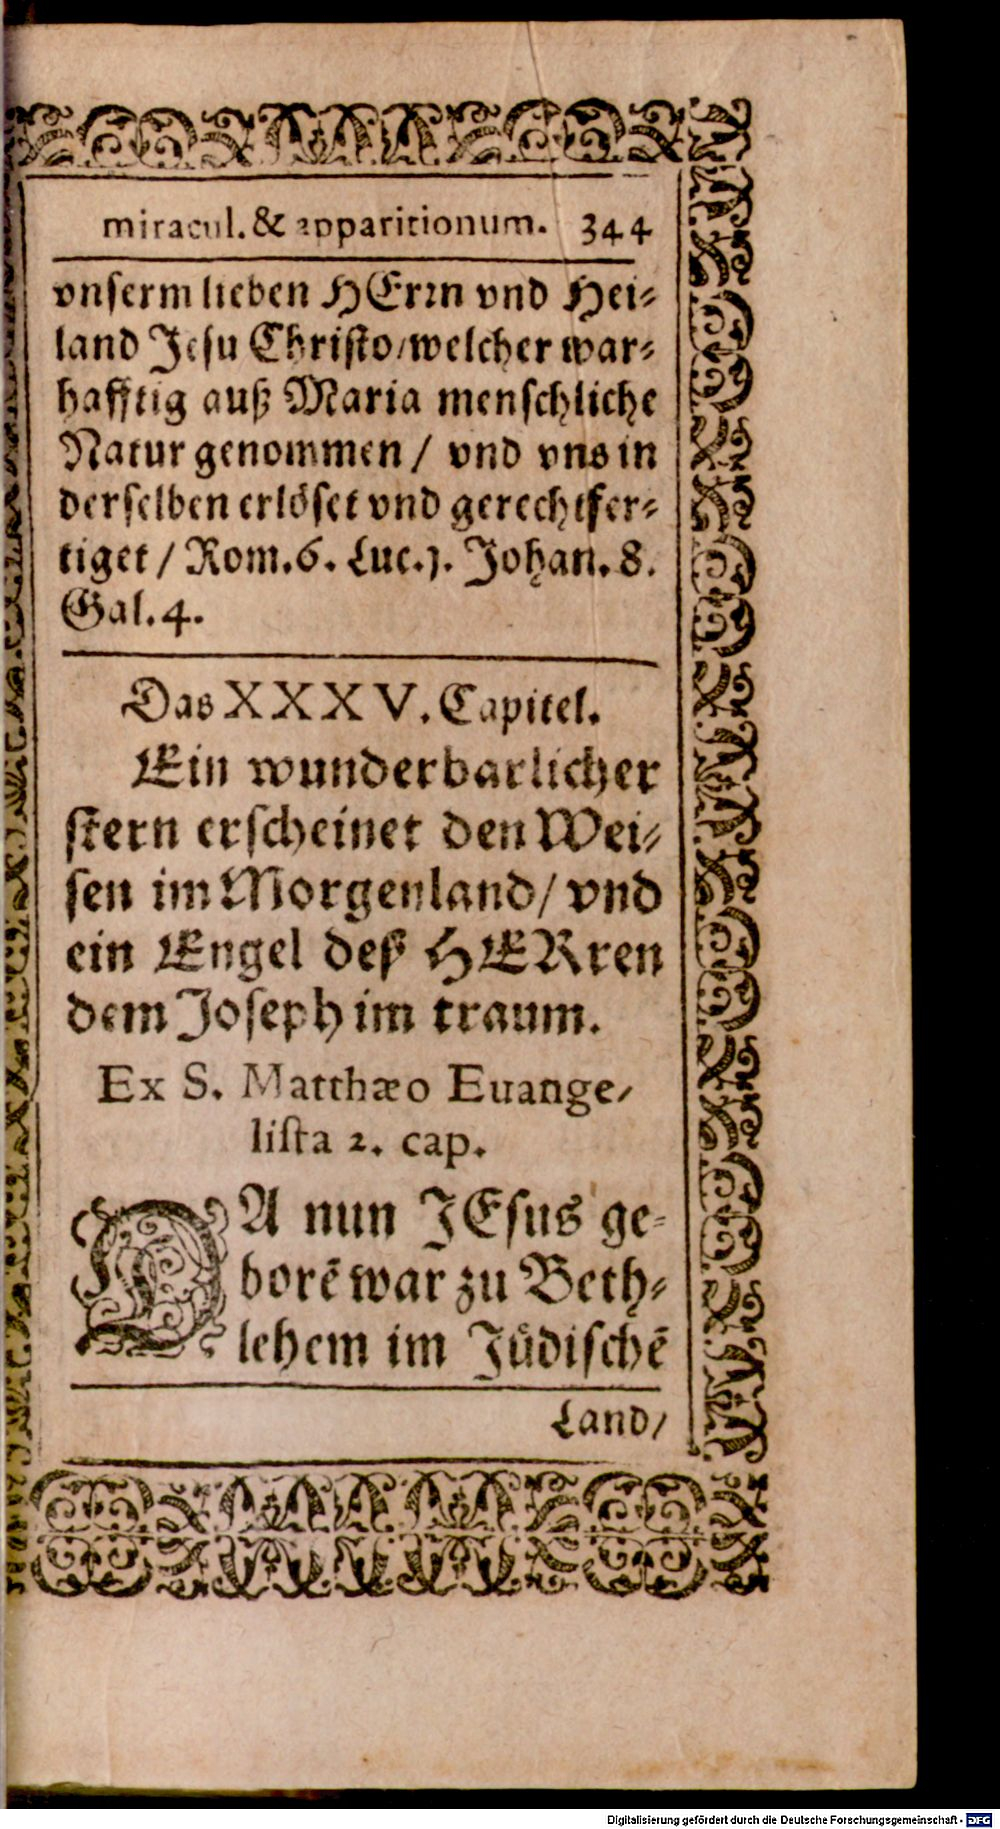 miracul. & apparitionum. 344
vnserm lieben HErrn vnd Hei-
land Jesu Christo/welcher war-
hafftig auß Maria menschliche
Natur genommen / vnd vns in
derselben erlöset vnd gerechtfer-
tiget / Rom.6. Luc.1. Johan. 8.
Gal.4.
Das XXXV. Capitel.
Ein wunderbarlicher
stern erscheinet den Wei-
sen im Morgenland/ vnd
ein Engel deß HERren
dem Joseph im traum.
Ex S. Matthæo Euange-
lista 2. cap.
DA nun JEsus ge-
borē war zu Beth-
lehem im Jüdischē
Land/
Digitalisierung gefördert durch die Deutsche Forschungsgemeinschaft - DFG